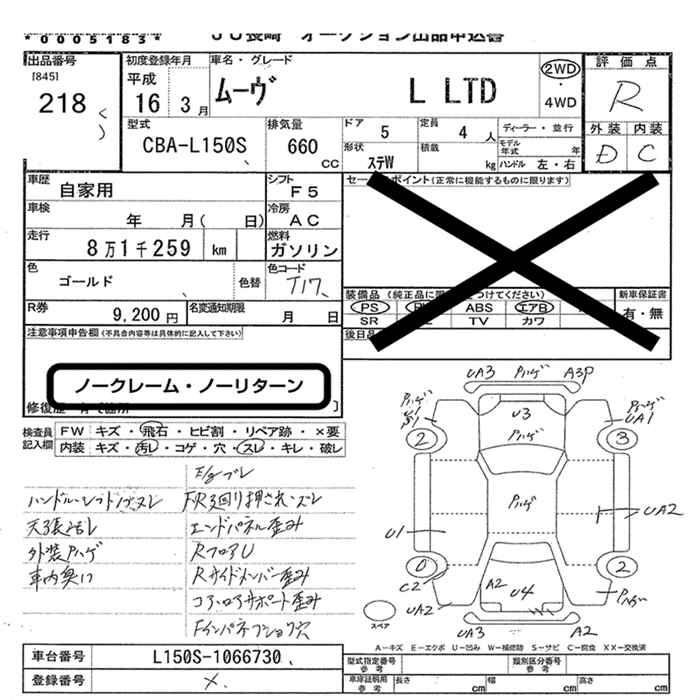 *0005183*
JU長崎 オークション出品申込書
出品番号
[845]
218
初度登録年月
平成
16 3月
車名・グレード
ムーヴ L LTD
2WD
・
4WD
評価点
R
外装 内装
D C
型式
CBA-L150S
排気量
660
CC
ドア
5
定員
4 人
ディーラー・並行
形状
ステW
積載
kg
モデル年式 年
ハンドル 左・右
車歴
自家用
シフト
F5
車検
年 月( 日)
冷房
AC
走行
8万1千259 km
燃料
ガソリン
色
ゴールド
色替
色コード
T17
R券
9,200円
名変通知期限
月 日
セールスポイント(正常に機能するものに限ります)
装備品
PS
ABS
エアB
SR
TV
カワ
新車保証書
有・無
注意事項申告欄(不具合内容等は具体的に記入して下さい)
ノークレーム・ノーリターン
検査員記入欄
FW キズ・飛石・ヒビ割・リペア跡・×要
内装 キズ・汚レ・コゲ・穴・スレ・キレ・破レ
E/gブレ
ハンドル・シフトノブスレ
F.R3廻り押され・ズレ
天張汚レ
エンドパネル歪み
外装Pハゲ
RフロアU
車内臭い
Rサイドメンバー歪み
コアロアサポート歪み
UA3 Pハゲ A3P
Pハゲ
U1
U3
Pハゲ
Pハゲ
UA1
2
3
Pハゲ
U1
UA2
0
2
C2
UA2
A2
U4
Pハゲ
UA3
A2
スペア
A-キズ E-エクボ U-凹み W-補修跡 S-サビ C-腐食 XX-交換済
車台番号
L150S-1066730
登録番号
×
型式指定番号
参考
類別区分番号
参考
車庫証明用
参考
長さ cm
幅 cm
高さ cm